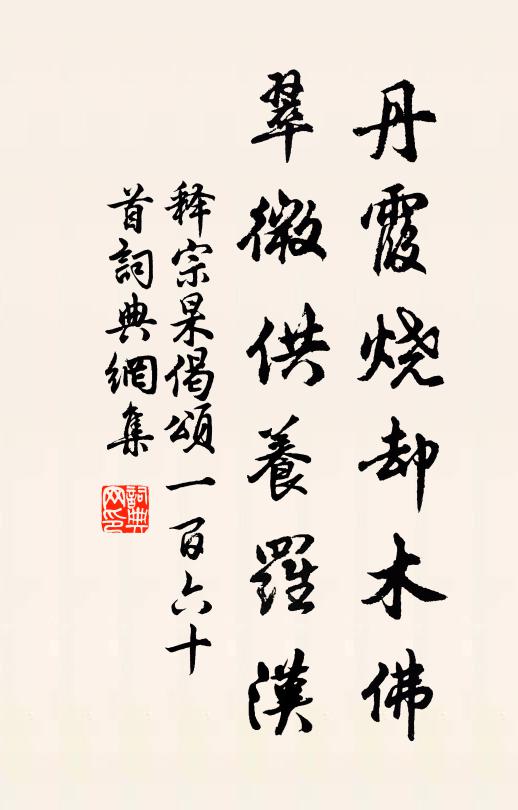 丹霞烧却木佛
翠微供養羅漢
释宗杲偈頌一百六十
首詞典網集
詞典
网印